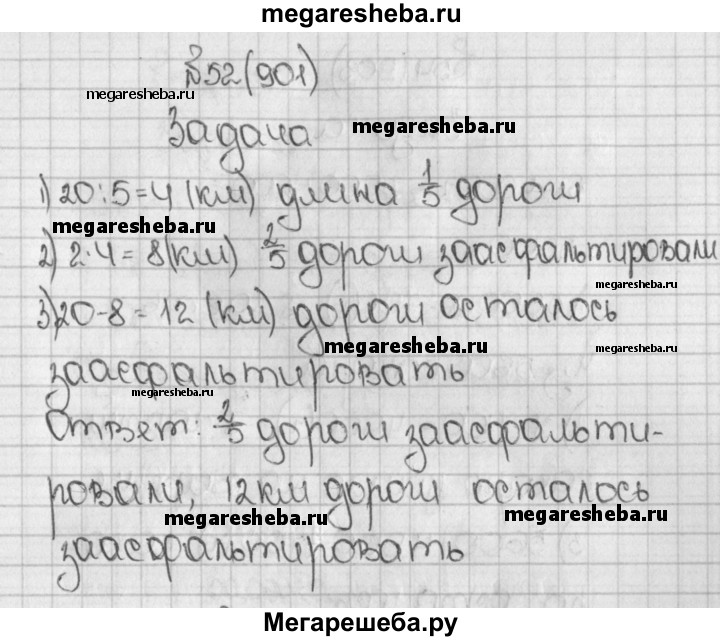 megaresheba.ru
№52(901)
megaresheba.ru
Задача megaresheba.ru
1) 20:5=4 (км) длина 1/5 дороги
megaresheba.ru
2) 2·4=8(км) 2/5 дороги заасфальтировали
megaresheba.ru
3) 20-8=12 (км) дороги осталось
megaresheba.ru megaresheba.ru
заасфальтировать
megaresheba.ru
Ответ: 2/5 дороги заасфальти-
ровали, 12км дороги осталось
megaresheba.ru megaresheba.ru
заасфальтировать
Мегарешеба.ру